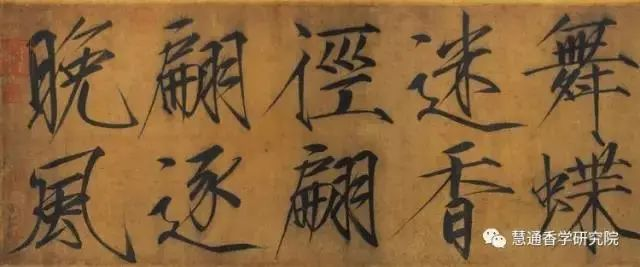 舞蝶
迷香
徑翩
翩逐
晚風
慧通香学研究院